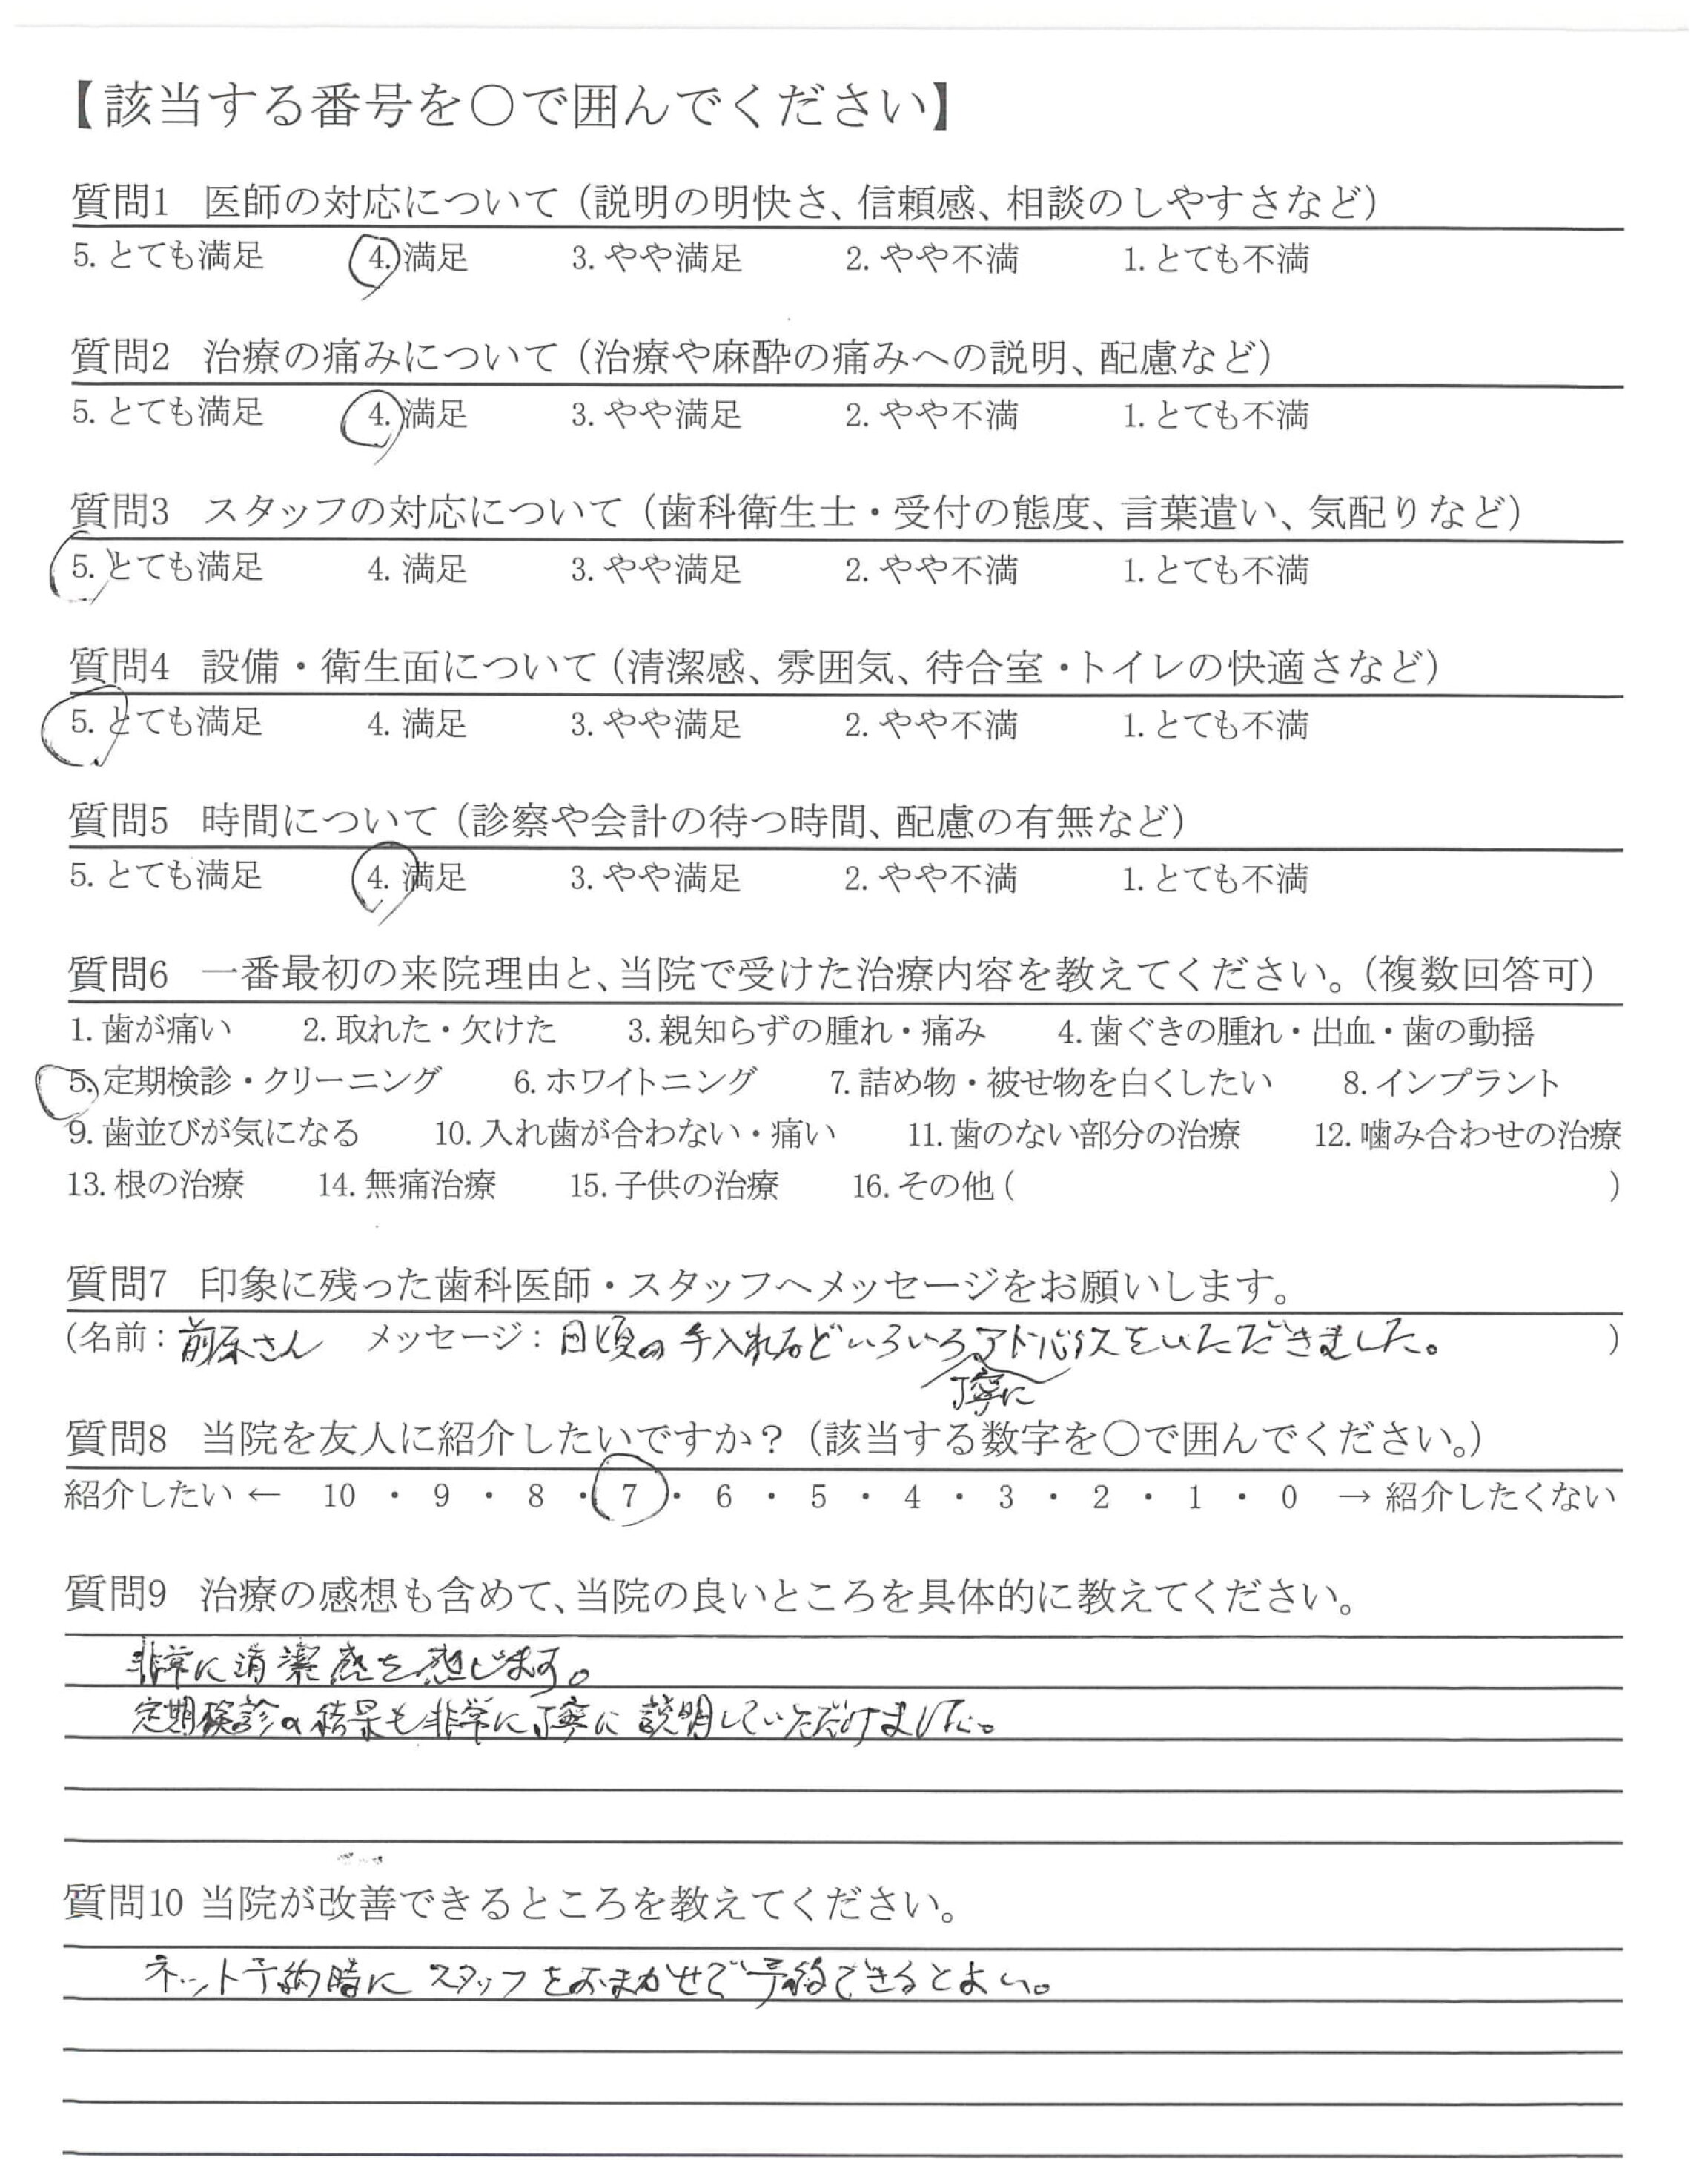 【該当する番号を○で囲んでください】
質問1 医師の対応について（説明の明快さ、信頼感、相談のしやすさなど）
5. とても満足 4. 満足 3. やや満足 2. やや不満 1. とても不満
質問2 治療の痛みについて（治療や麻酔の痛みへの説明、配慮など）
5. とても満足 4. 満足 3. やや満足 2. やや不満 1. とても不満
質問3 スタッフの対応について（歯科衛生士・受付の態度、言葉遣い、気配りなど）
5. とても満足 4. 満足 3. やや満足 2. やや不満 1. とても不満
質問4 設備・衛生面について（清潔感、雰囲気、待合室・トイレの快適さなど）
5. とても満足 4. 満足 3. やや満足 2. やや不満 1. とても不満
質問5 時間について（診察や会計の待つ時間、配慮の有無など）
5. とても満足 4. 満足 3. やや満足 2. やや不満 1. とても不満
質問6 一番最初の来院理由と、当院で受けた治療内容を教えてください。（複数回答可）
1. 歯が痛い 2. 取れた・欠けた 3. 親知らずの腫れ・痛み 4. 歯ぐきの腫れ・出血・歯の動揺
5. 定期検診・クリーニング 6. ホワイトニング 7. 詰め物・被せ物を白くしたい 8. インプラント
9. 歯並びが気になる 10. 入れ歯が合わない・痛い 11. 歯のない部分の治療 12. 噛み合わせの治療
13. 根の治療 14. 無痛治療 15. 子供の治療 16. その他 ( )
質問7 印象に残った歯科医師・スタッフへメッセージをお願いします。
(名前：前原さん メッセージ：日頃の手入れなどいろいろアドバイスをいただきました。 )
丁寧に
質問8 当院を友人に紹介したいですか？（該当する数字を○で囲んでください。）
紹介したい ← 10 ・ 9 ・ 8 ・ 7 ・ 6 ・ 5 ・ 4 ・ 3 ・ 2 ・ 1 ・ 0 → 紹介したくない
質問9 治療の感想も含めて、当院の良いところを具体的に教えてください。
非常に清潔感を感じます。
定期検診の結果も非常に丁寧に説明していただけました。
質問10 当院が改善できるところを教えてください。
ネット予約時にスタッフをおまかせで予約できるとよい。